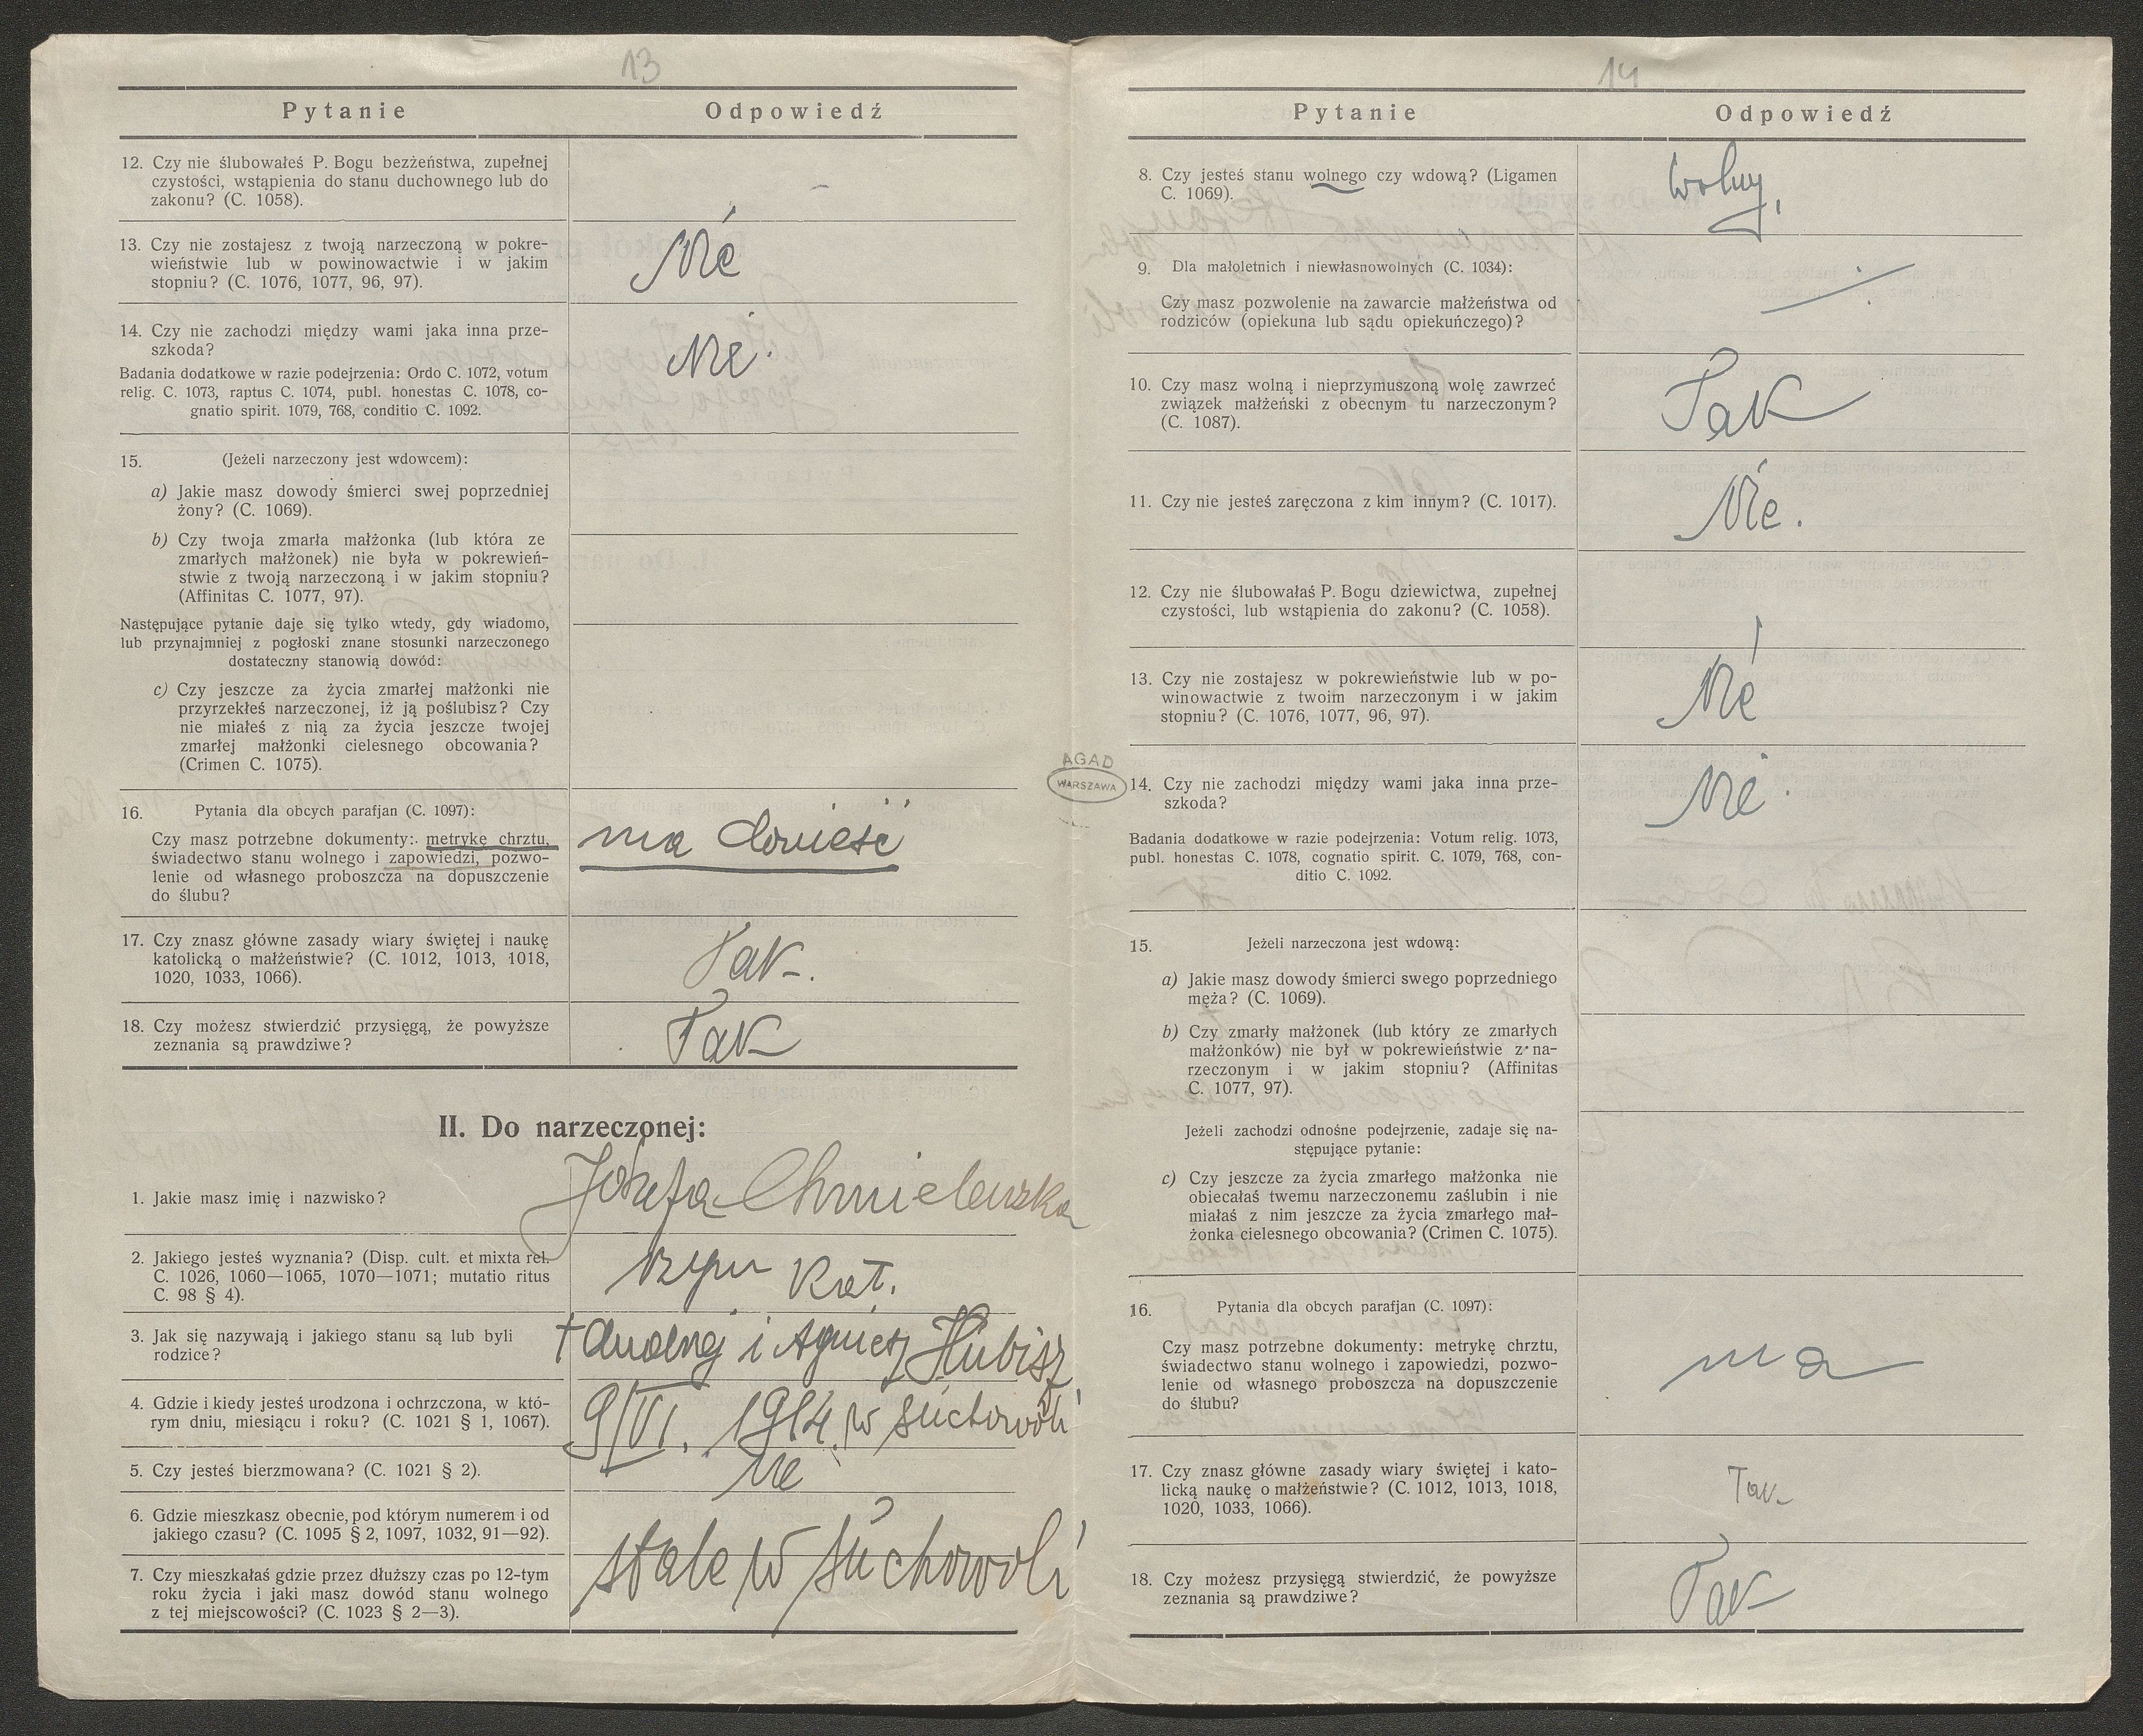 13
Pytanie
Odpowiedź
12. Czy nie ślubowałeś P. Bogu bezżeństwa, zupełnej
czystości, wstąpienia do stanu duchownego lub do
zakonu? (C. 1058).
–
13. Czy nie zostajesz z twoją narzeczoną w pokre-
wieństwie lub w powinowactwie i w jakim
stopniu? (C. 1076, 1077, 96, 97).
Nie
14. Czy nie zachodzi między wami jaka inna prze-
szkoda?
Nie.
Badania dodatkowe w razie podejrzenia: Ordo C. 1072, votum
relig. C. 1073, raptus C. 1074, publ. honestas C. 1078, co-
gnatio spirit. 1079, 768, conditio C. 1092.
15. (Jeżeli narzeczony jest wdowcem):
a) Jakie masz dowody śmierci swej poprzedniej
żony? (C. 1069).
b) Czy twoja zmarła małżonka (lub która ze
zmarłych małżonek) nie była w pokrewień-
stwie z twoją narzeczoną i w jakim stopniu?
(Affinitas C. 1077, 97).
Następujące pytanie daje się tylko wtedy, gdy wiadomo,
lub przynajmniej z pogłoski znane stosunki narzeczonego
dostateczny stanowią dowód:
c) Czy jeszcze za życia zmarłej małżonki nie
przyrzekłeś narzeczonej, iż ją poślubisz? Czy
nie miałeś z nią za życia jeszcze twojej
zmarłej małżonki cielesnego obcowania?
(Crimen C. 1075).
16. Pytania dla obcych parafjan (C. 1097):
Czy masz potrzebne dokumenty: metrykę chrztu,
świadectwo stanu wolnego i zapowiedzi, pozwo-
lenie od własnego proboszcza na dopuszczenie
do ślubu?
ma donieść
17. Czy znasz główne zasady wiary świętej i naukę
katolicką o małżeństwie? (C. 1012, 1013, 1018,
1020, 1033, 1066).
Tak.
18. Czy możesz stwierdzić przysięgą, że powyższe
zeznania są prawdziwe?
Tak
II. Do narzeczonej:
1. Jakie masz imię i nazwisko?
Józefa Chmielewska
2. Jakiego jesteś wyznania? (Disp. cult. et mixta rel.
C. 1026, 1060—1065, 1070—1071; mutatio ritus
C. 98 § 4).
rzym kat.
3. Jak się nazywają i jakiego stanu są lub byli
rodzice?
† Andrzej i Agniesz Hubisz
4. Gdzie i kiedy jesteś urodzona i ochrzczona, w któ-
rym dniu, miesiącu i roku? (C. 1021 § 1, 1067).
9/VI. 1914. w Suchowoli
5. Czy jesteś bierzmowana? (C. 1021 § 2).
Nie
6. Gdzie mieszkasz obecnie, pod którym numerem i od
jakiego czasu? (C. 1095 § 2, 1097, 1032, 91—92).
7. Czy mieszkałaś gdzie przez dłuższy czas po 12-tym
roku życia i jaki masz dowód stanu wolnego
z tej miejscowości? (C. 1023 § 2—3).
stale w Suchowoli
14
Pytanie
Odpowiedź
8. Czy jesteś stanu wolnego czy wdową? (Ligamen
C. 1069).
wolny,
9. Dla małoletnich i niewłasnowolnych (C. 1034):
Czy masz pozwolenie na zawarcie małżeństwa od
rodziców (opiekuna lub sądu opiekuńczego)?
10. Czy masz wolną i nieprzymuszoną wolę zawrzeć
związek małżeński z obecnym tu narzeczonym?
(C. 1087).
Tak
11. Czy nie jesteś zaręczona z kim innym? (C. 1017).
Nie.
12. Czy nie ślubowałaś P. Bogu dziewictwa, zupełnej
czystości, lub wstąpienia do zakonu? (C. 1058).
13. Czy nie zostajesz w pokrewieństwie lub w po-
winowactwie z twoim narzeczonym i w jakim
stopniu? (C. 1076, 1077, 96, 97).
Nie
AGAD
WARSZAWA
14. Czy nie zachodzi między wami jaka inna prze-
szkoda?
Nie.
Badania dodatkowe w razie podejrzenia: Votum relig. 1073,
publ. honestas C. 1078, cognatio spirit. C. 1079, 768, con-
ditio C. 1092.
15. Jeżeli narzeczona jest wdową:
a) Jakie masz dowody śmierci swego poprzedniego
męża? (C. 1069).
b) Czy zmarły małżonek (lub który ze zmarłych
małżonków) nie był w pokrewieństwie z na-
rzeczonym i w jakim stopniu? (Affinitas
C. 1077, 97).
Jeżeli zachodzi odnośne podejrzenie, zadaje się na-
stępujące pytanie:
c) Czy jeszcze za życia zmarłego małżonka nie
obiecałaś twemu narzeczonemu zaślubin i nie
miałaś z nim jeszcze za życia zmarłego mał-
żonka cielesnego obcowania? (Crimen C. 1075).
16. Pytania dla obcych parafjan (C. 1097):
Czy masz potrzebne dokumenty: metrykę chrztu,
świadectwo stanu wolnego i zapowiedzi, pozwo-
lenie od własnego proboszcza na dopuszczenie
do ślubu?
ma
17. Czy znasz główne zasady wiary świętej i kato-
licką naukę o małżeństwie? (C. 1012, 1013, 1018,
1020, 1033, 1066).
Tak
18. Czy możesz przysięgą stwierdzić, że powyższe
zeznania są prawdziwe?
Tak